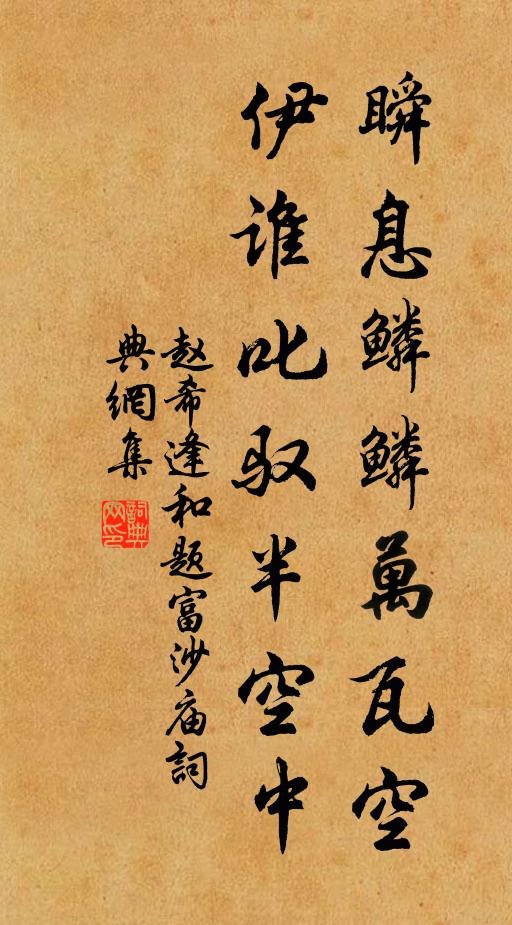 瞬息鳞鳞萬瓦空
伊谁叱驭半空中
赵希逢和题富沙庙詞
典網集
詞典网印